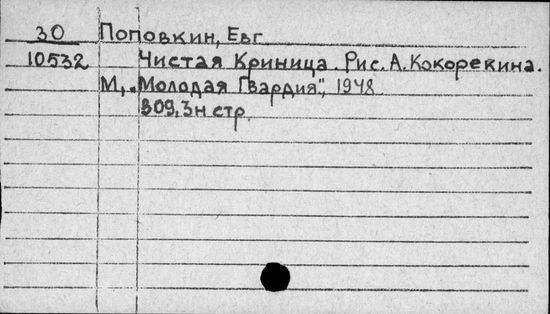 30 Поповкин, Евг
10532 Чистая Криница. Рис. А. Кокорекина.
М, „Молодая Гвардия", 1948
309, 3н стр.